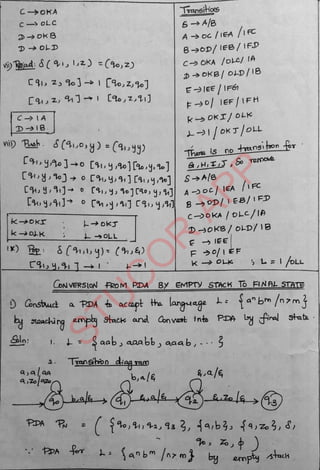 C → OKA
C → OLC
D → OKB
D → OLD
vii) Read: δ(q1, 1, z) = (q0, z)
[q1, z, q0] → 1 [q0, z, q0]
[q1, z, q1] → 1 [q0, z, q1]
C → 1A
D → 1B
viii) Push: δ(q1, 0, y) = (q1, yy)
[q1, y, q0] → 0 [q1, y, q0] [q0, y, q0]
[q1, y, q0] → 0 [q1, y, q1] [q1, y, q0]
[q1, y, q1] → 0 [q1, y, q0] [q0, y, q1]
[q1, y, q1] → 0 [q1, y, q1] [q1, y, q1]
K → OKI ; L → OKJ
K → OLK L → OLL
ix) Pop: δ(q1, 1, y) = (q1, ε)
[q1, y, q1] → 1 L → 1
Transitions
S → A/B
A → OC / IEA / IFC
B → OD / IEB / IFD
C → OKA / OLC / IA
D → OKB / OLD / IB
E → IEE / IFG
F → O / IEF / IFH
K → OKI / OLK
L → 1 / OKJ / OLL
There is no transition for
G, H, I, J, So remove
S → A/B
A → OC / IEA / IFC
B → OD / IEB / IFD
C → OKA / OLC / IA
D → OKB / OLD / IB
E → IEE
F → O / IEF
K → OLK ; L = 1 / OLL
CONVERSION FROM PDA BY EMPTY STACK TO FINAL STATE
1) Construct a PDA to accept the language L = { a^n b^m / n > m }
by reaching empty stack and Convert into PDA by final state.
Soln: 1. L = { aab, aaabb, aaab, ... }
2. Transition diagram
a, a/aa
a, z0/az0
b, a/ε
ε, a/ε
q0 b, a/ε q1 ε, a/ε q2 ε, z0/ε q3
PDA PN = ( {q0, q1, q2, q3}, {a, b}, {a, z0}, δ,
q0, z0, φ )
∵ PDA for L = { a^n b^m / n > m } by empty stack